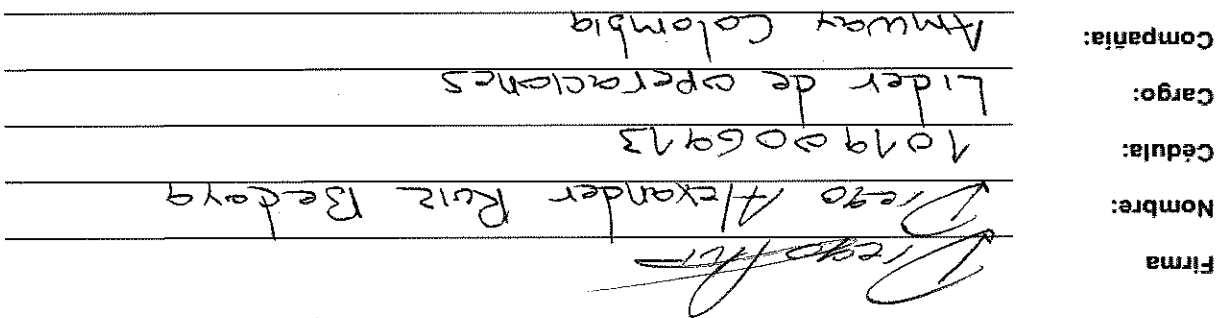 Firma Diego Rui
Nombre: Diego Alexander Ruiz Bedoya
Cédula: 1019006913
Cargo: Lider de operaciones
Compañia: Amway Colombia